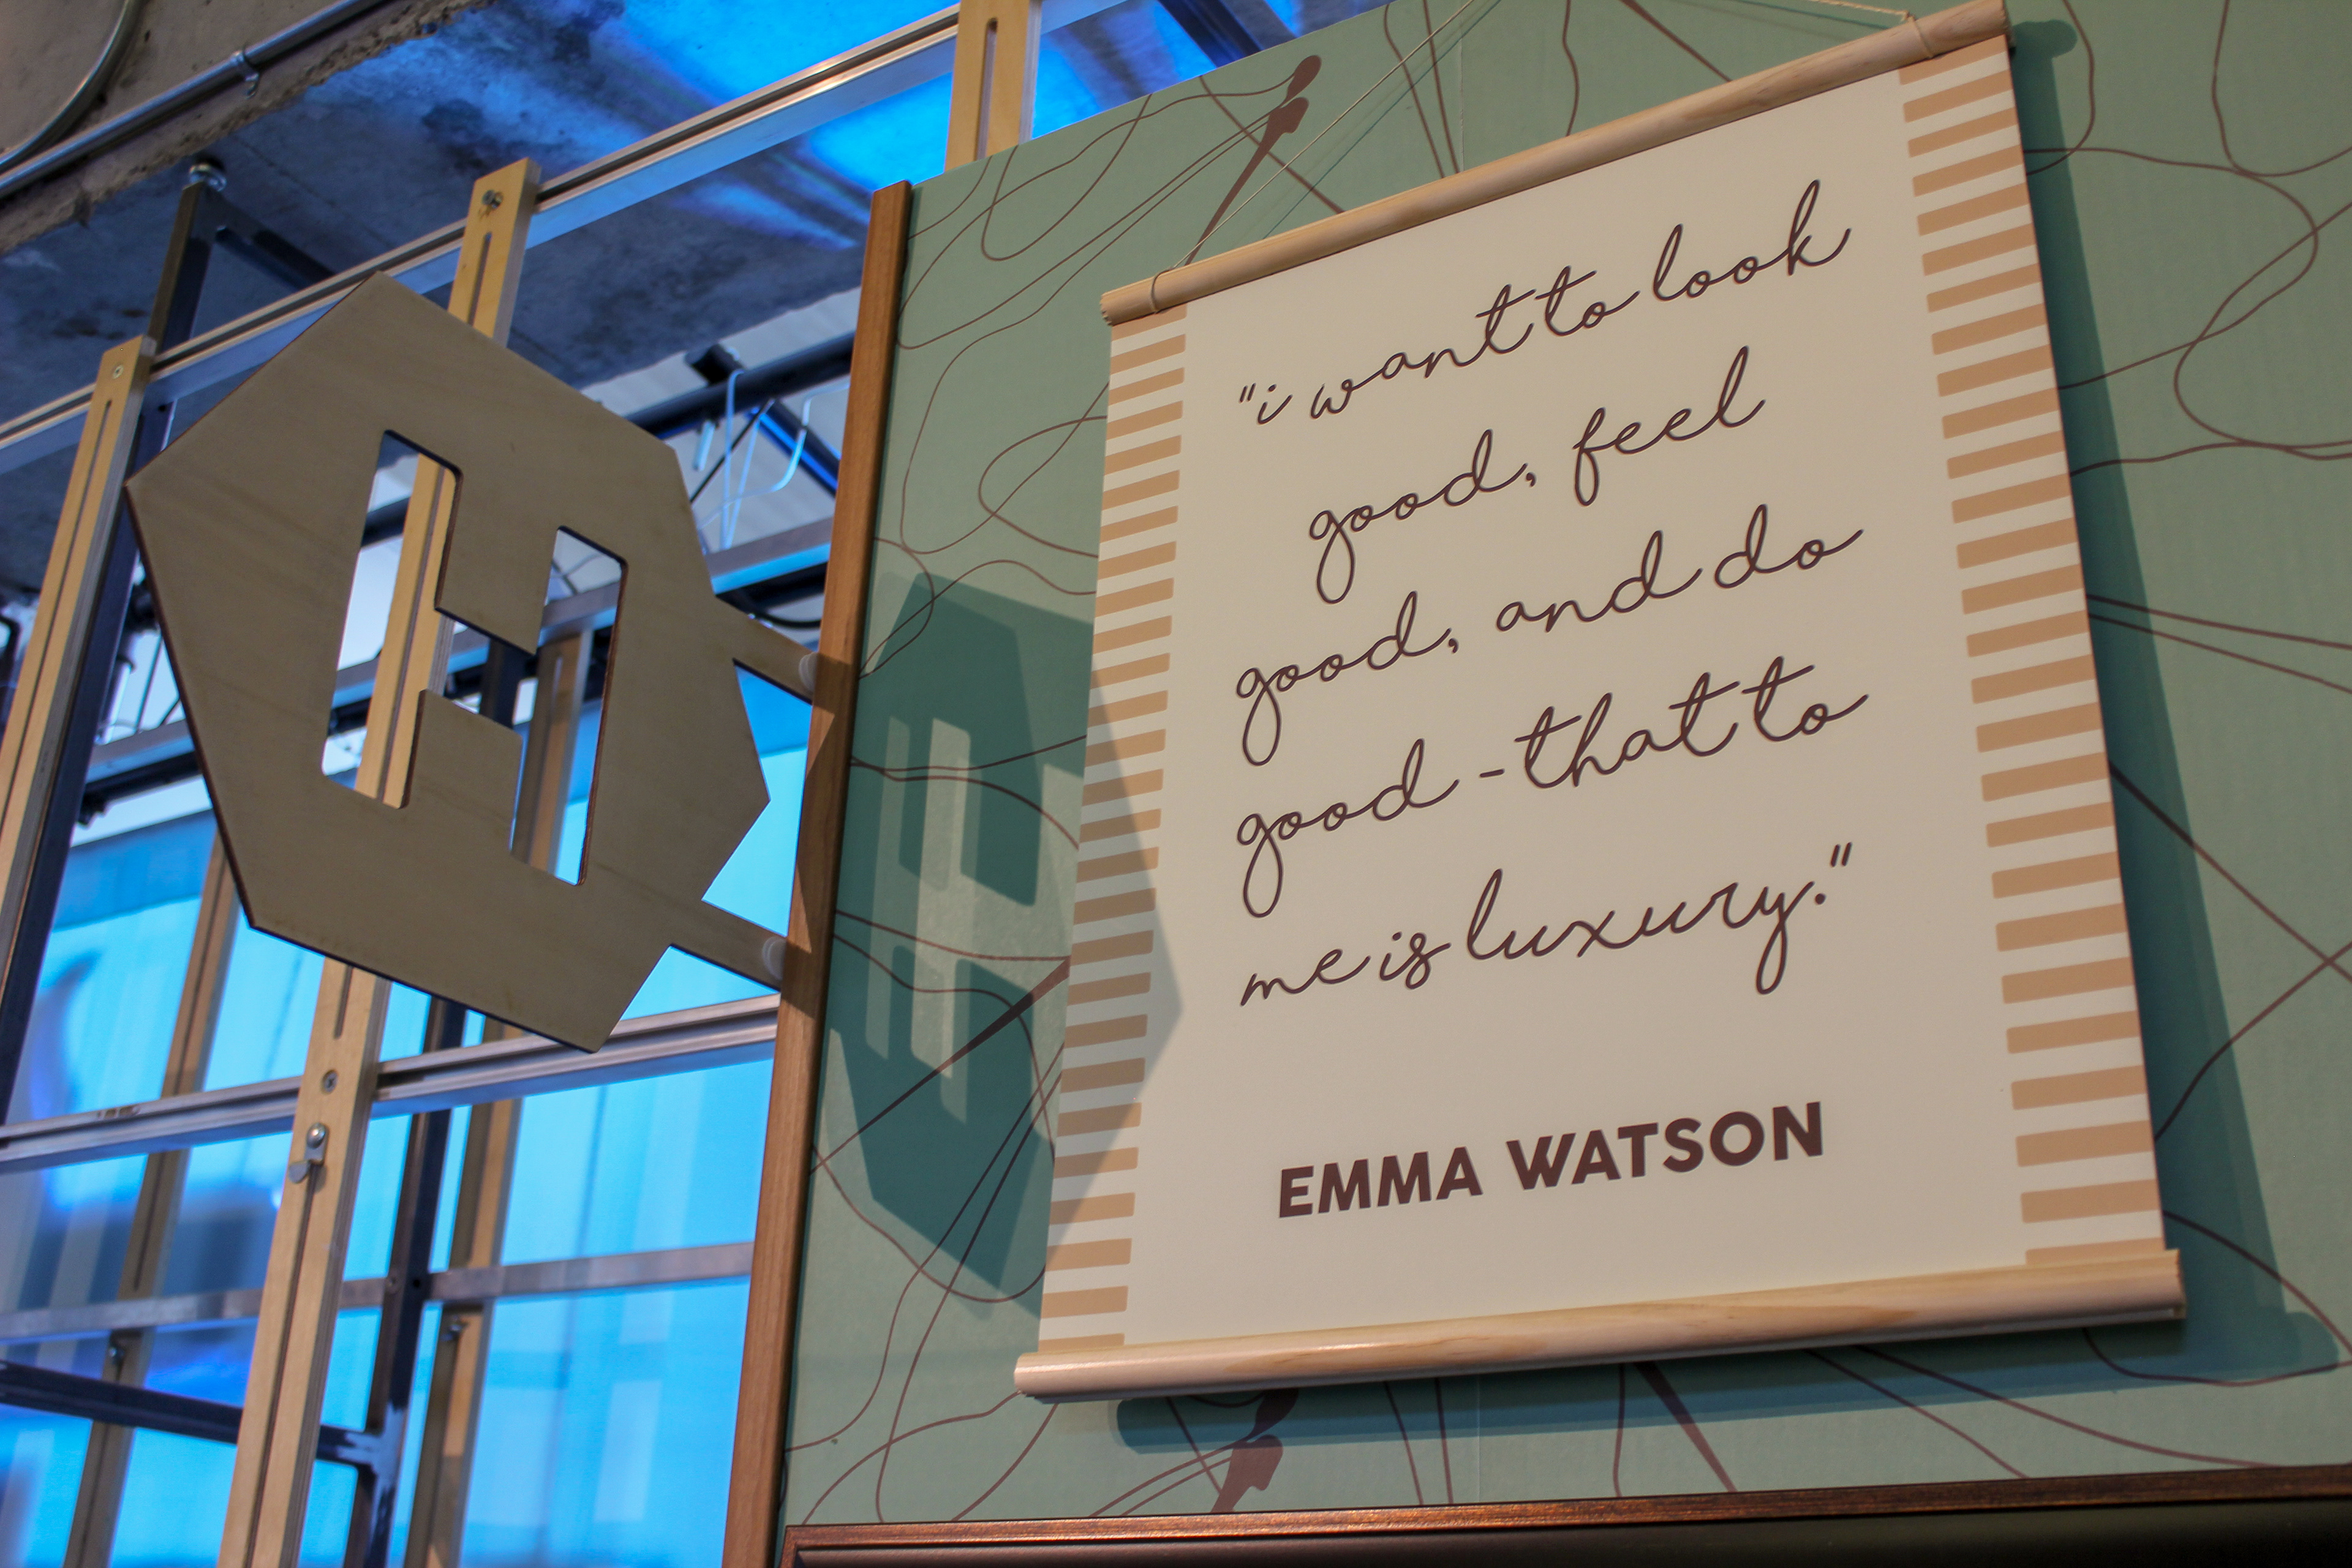 H
"i want to look
good, feel
good, and do
good - that to
me is luxury."
EMMA WATSON